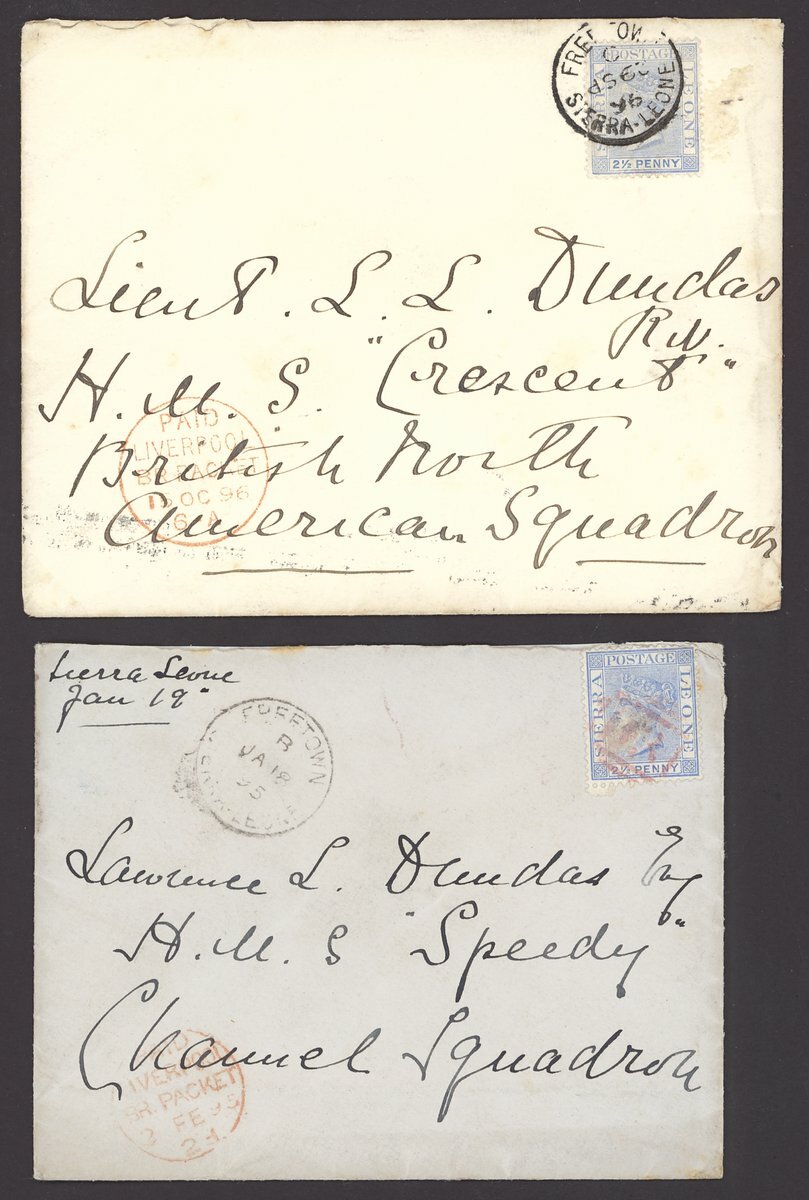 FREETOWN
29 SP
96
SIERRA-LEONE
POSTAGE
LEONE
2½ PENNY
Lieut. L. L. Dundas
R.N.
H. M. S. "Crescent"
British North
American Squadron
PAID
LIVERPOOL
BR. PACKET
15 OC 96
6 A
Sierra Leone
Jan 19"
FREETOWN
B
JA 18
95
SIERRA-LEONE
SIERRA
POSTAGE
LEONE
2½ PENNY
Lawrence L. Dundas Esq
H. M. S "Speedy"
Channel Squadron
PAID
LIVERPOOL
BR. PACKET
2 FE 95